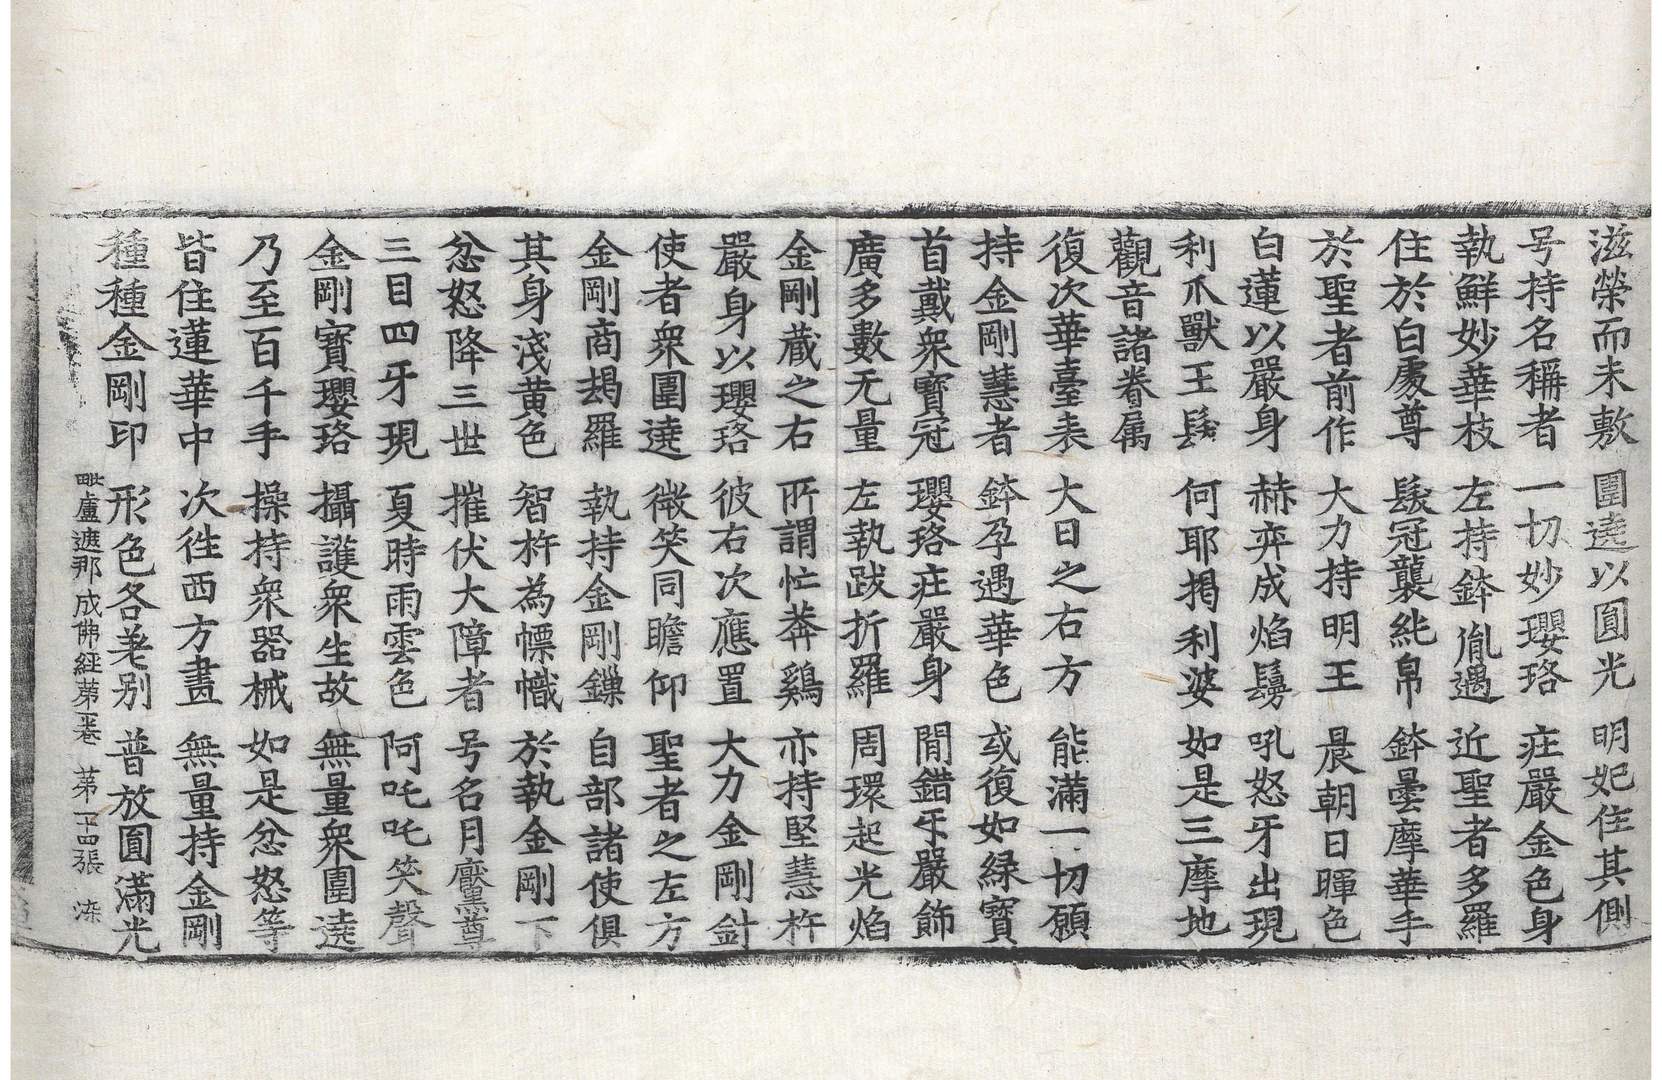 滋榮而未敷 圍遶以圓光 明妃住其側
号持名稱者 一切妙瓔珞 莊嚴金色身
執鮮妙華枝 左持鉢胤遇 近聖者多羅
住於白處尊 髮冠襲純帛 鉢曇摩華手
於聖者前作 大力持明王 晨朝日暉色
白蓮以嚴身 赫弈成焰鬘 吼怒牙出現
利爪獸王髮 何耶揭利婆 如是三摩地
觀音諸眷属
復次華臺表 大日之右方 能滿一切願
持金剛慧者 鉢孕遇華色 或復如緑寶
首戴衆寶冠 瓔珞庄嚴身 間錯乎嚴飾
廣多數无量 左執跋折羅 周環起光焰
金剛藏之右 所謂忙莽鷄 亦持堅慧杵
嚴身以瓔珞 彼右次應置 大力金剛針
使者衆圍遶 微笑同瞻仰 聖者之左方
金剛商朅羅 執持金剛鏁 自部諸使俱
其身淺黄色 智杵為幖幟 於執金剛下
忿怒降三世 摧伏大障者 号名月黶尊
三目四牙現 夏時雨雲色 阿吒吒笑聲
金剛寶瓔珞 攝護衆生故 無量衆圍遶
乃至百千手 操持衆器械 如是忿怒等
皆住蓮華中 次徃西方畫 無量持金剛
種種金剛印 形色各差別 普放圓滿光
毗盧遮那成佛經第卷 第十四張